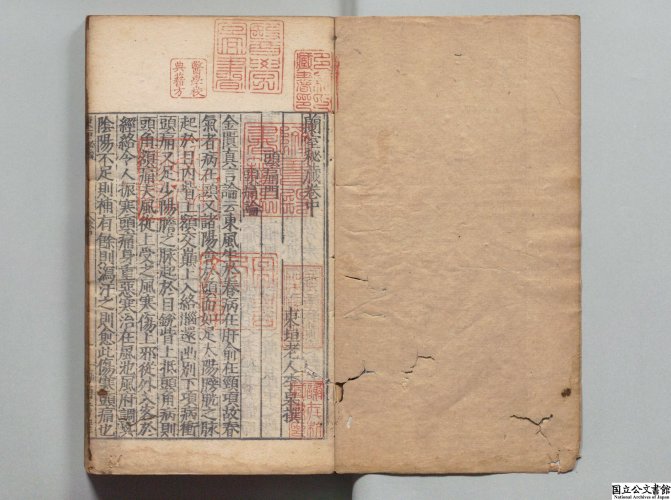 蘭室秘藏卷中
東垣老人李杲撰
頭痛門
頭痛論
金匱真言論云東風生於春病在肝俞在頸項故春
氣者病在頭又諸陽會於頭面如足太陽膀胱之脉
起於目內眥上額交巔上入絡腦還出別下項病衝
頭痛又足少陽膽之脉起於目銳眥上抵頭角病則
頭角額痛夫風從上受之風寒傷上邪從外入客於
經絡令人振寒頭痛身重惡寒治在風池風府調其
陰陽不足則補有餘則瀉汗之則愈此傷寒頭痛也
醫學校
典藉方
国立公文書館
National Archives of Japan